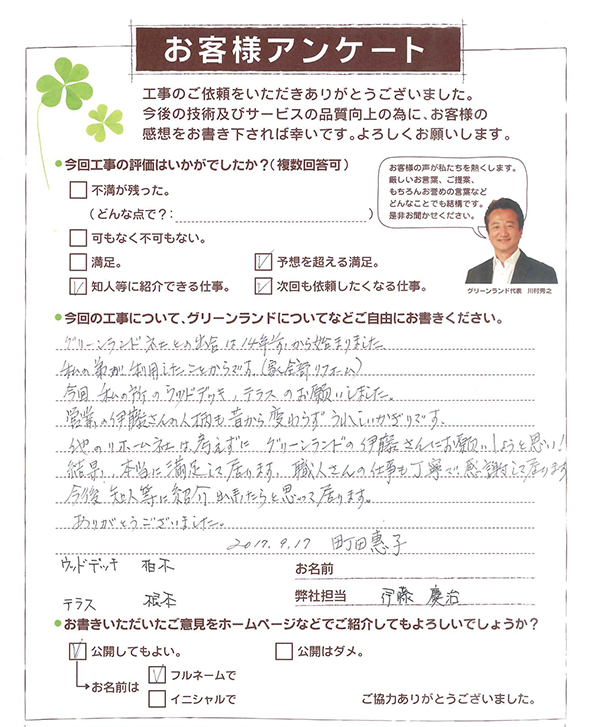 お客様アンケート
工事のご依頼をいただきありがとうございました。
今後の技術及びサービスの品質向上の為に、お客様の
感想をお書き下されば幸いです。よろしくお願いします。
今回工事の評価はいかがでしたか?(複数回答可)
不満が残った。
(どんな点で?: )
可もなく不可もない。
満足。
予想を超える満足。
知人等に紹介できる仕事。
次回も依頼したくなる仕事。
お客様の声が私たちを熱くします。
厳しいお言葉、ご提案、
もちろんお誉めの言葉など
どんなことでも結構です。
是非お聞かせください。
グリーンランド代表 川村秀之
今回の工事について、グリーンランドについてなどご自由にお書きください。
グリーンランド社との出会は14年前から始まりました
私の弟が利用したことからです。(家全部リフォーム)
今回 私の所のウッドデッキ、テラスのお願いしました。
営業の伊藤さんの人柄も昔から変わらずうれしいかぎりです。
他のリホーム社は考えずに グリーンランドの伊藤さんにお願いしようと思い!
結果、本当に満足して居ります。職人さんの仕事も丁寧で感謝して居ります
今後 知人等に紹介出来たらと思って居ります。
ありがとうございました。
2017.9.17 町田惠子
ウッドデッキ 柏木
お名前
テラス 根本
弊社担当 伊藤 慶治
お書きいただいたご意見をホームページなどでご紹介してもよろしいでしょうか?
公開してもよい。
公開はダメ。
お名前は
フルネームで
イニシャルで
ご協力ありがとうございました。